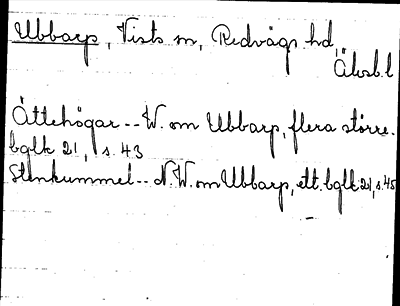 Ubbarp, Vists sn, Redvägs hd,
Älvsb.l
Ättehögar -- W. om Ubbarp, flera större.
bglk 21, s. 43
Stenkummel -- N.W. om Ubbarp, ett. bglk 21, s. 45